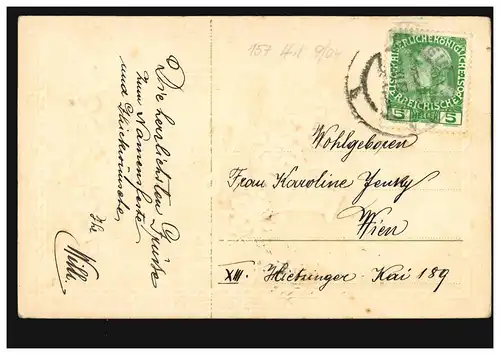 Die herrlichsten Grüsse
zum Namensfeste
und Glückwünsche
Ihr
Willi.
157
9/04
KAISERLICHE KÖNIGLICHE
ÖSTERREICHISCHE POST
5 HELLER 5
Wohlgeboren
Frau Karoline
Wien
XIII. Hietzinger-Kai 189